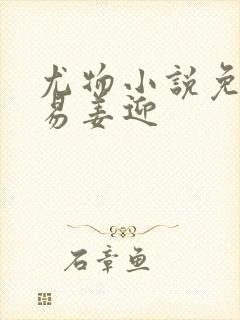 尤物小説免
易姜迎
石章鱼